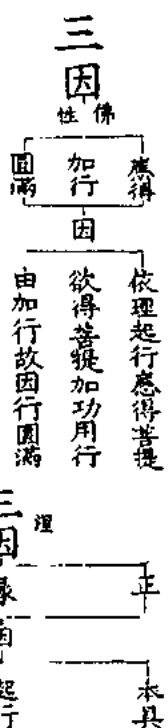 三因
佛性
應得
加行
圓滿
因
依理起行應得菩提
欲得菩提加功用行
由加行故因行圓滿
三因
涅
正
緣
本具
起行